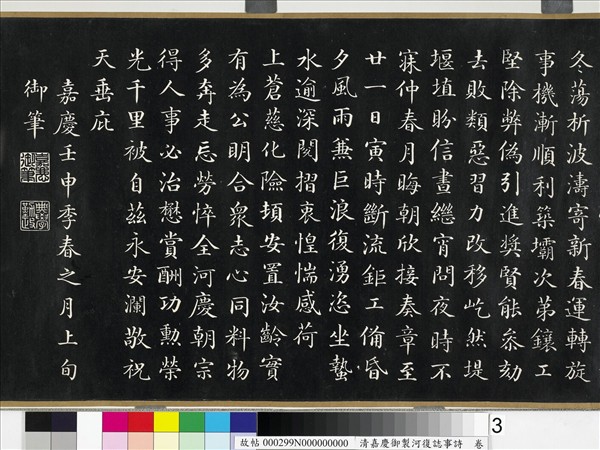 冬蕩析波濤寄新春運轉旋
事機漸順利築壩次第鑲工
堅除弊偽引進奬賢能叅劾
去敗類惡習力改移屹然堤
堰埴盼信晝繼宵問夜時不
寐仲春月晦朝欣接奏章至
廿一日寅時斷流鉅工備昏
夕風雨兼巨浪復湧恣坐蟄
水逾深閲摺衷惶惴感荷
上蒼慈化險頃安置汝齡實
有為公明合衆志心同料物
多奔走忘勞悴全河慶朝宗
得人事必治懋賞酬功勲榮
光千里被自兹永安瀾敬祝
天垂庇
嘉慶壬申季春之月上旬
御筆
3
故帖 000299N000000000 清嘉慶御製河復誌事詩 卷